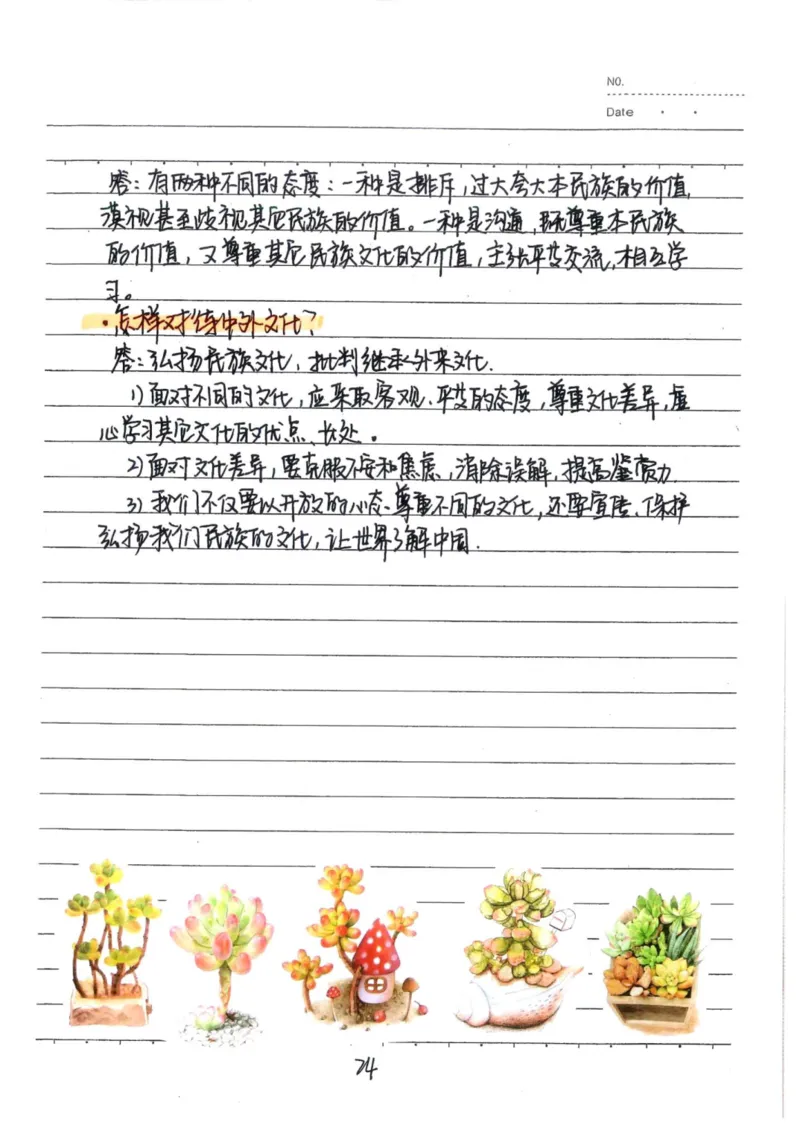 NO.
Date
答：有两种不同的态度：一种是排斥，过大夸大本民族的价值，
漠视甚至歧视其它民族的价值。一种是沟通，既尊重本民族
的价值，又尊重其它民族文化的价值，主张平等交流，相互学
习。
·怎样对待中外文化？
答：弘扬民族文化，批判继承外来文化．
1）面对不同的文化，应采取客观、平等的态度，尊重文化差异，虚
心学习其它文化的优点、长处。
2）面对文化差异，要克服不安和焦虑，消除误解，提高鉴赏力．
3）我们不仅要以开放的心态、尊重不同的文化，还要宣传、保护
弘扬我们民族的文化，让世界了解中国．
24